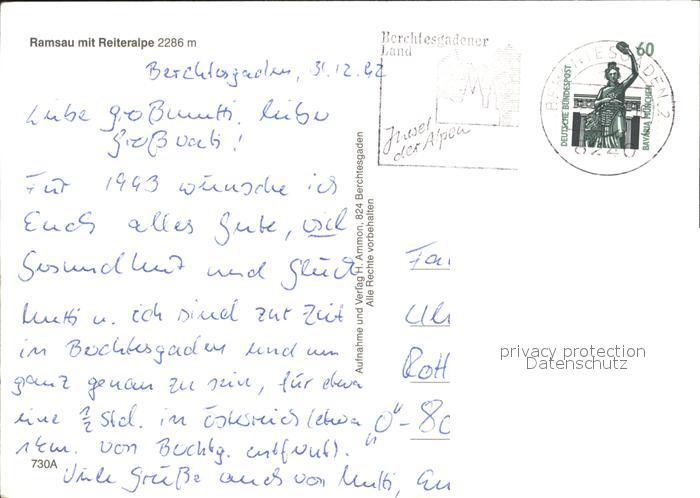 Ramsau mit Reiteralpe 2286 m
Berchtesgadener
Land
60
Berchtesgaden, 31.12.92
Insel
der Alpen
BERCHTESGADEN 2
8240
DEUTSCHE BUNDESPOST
BAVARIA MÜNCHEN
Liebe Großmutti, lieber
Großvati!
Für 1993 wünsche ich
Euch alles Gute, viel
Gesundheit und Glück
Mutti u. ich sind zur Zeit
in Berchtesgaden und um
ganz genau zu sein, für etwa
eine ½ Std. in Österreich (etwa
km. von Berchtg. entfernt).
Viele Grüße auch von Mutti,
Aufnahme und Verlag H. Ammon, 824 Berchtesgaden
Alle Rechte vorbehalten
Fa
Ul
Rott
"O"-80
privacy protection
Datenschutz
730A